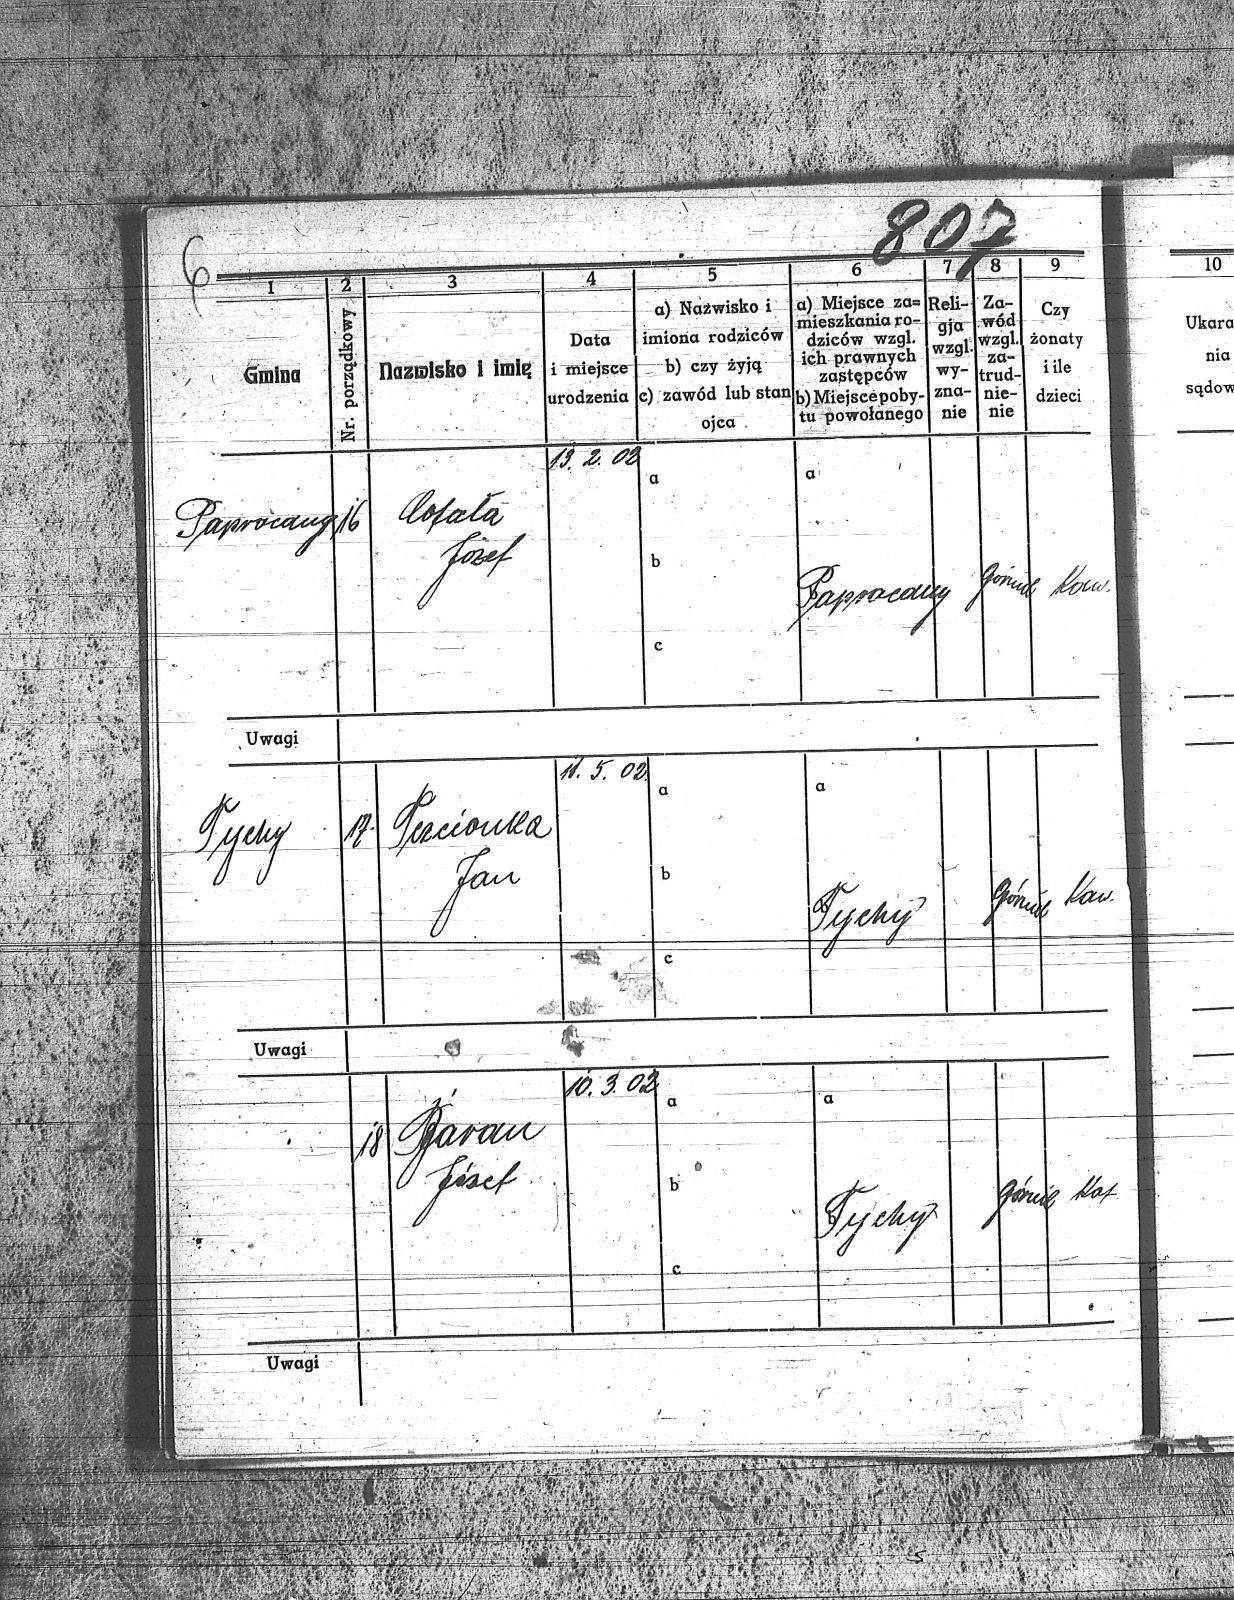 6
807
1 2 3 4 5 6 7 8 9 10
Gmina
Nr. porządkowy
Nazwisko i imię
Data
i miejsce
urodzenia
a) Nazwisko i
imiona rodziców
b) czy żyją
c) zawód lub stan
ojca
a) Miejsce za=
mieszkania ro-
dziców wzgl.
ich prawnych
zastępców
b) Miejsce poby-
tu powołanego
Reli-
gja
wzgl.
wy-
zna-
nie
Za-
wód
wzgl.
za-
trud-
nie-
nie
Czy
żonaty
i ile
dzieci
Ukara
nia
sądow
13. 2. 02
a a
Paprocany 16
Józef
b
Paprocany Górnik Kaw.
c
Uwagi
11. 5. 02.
a a
Tychy 17.
Jan
b
Tychy Górnik Kaw.
c
Uwagi
10. 3. 02
a a
18 Baran
Józef
b
Tychy Górnik
c
Uwagi